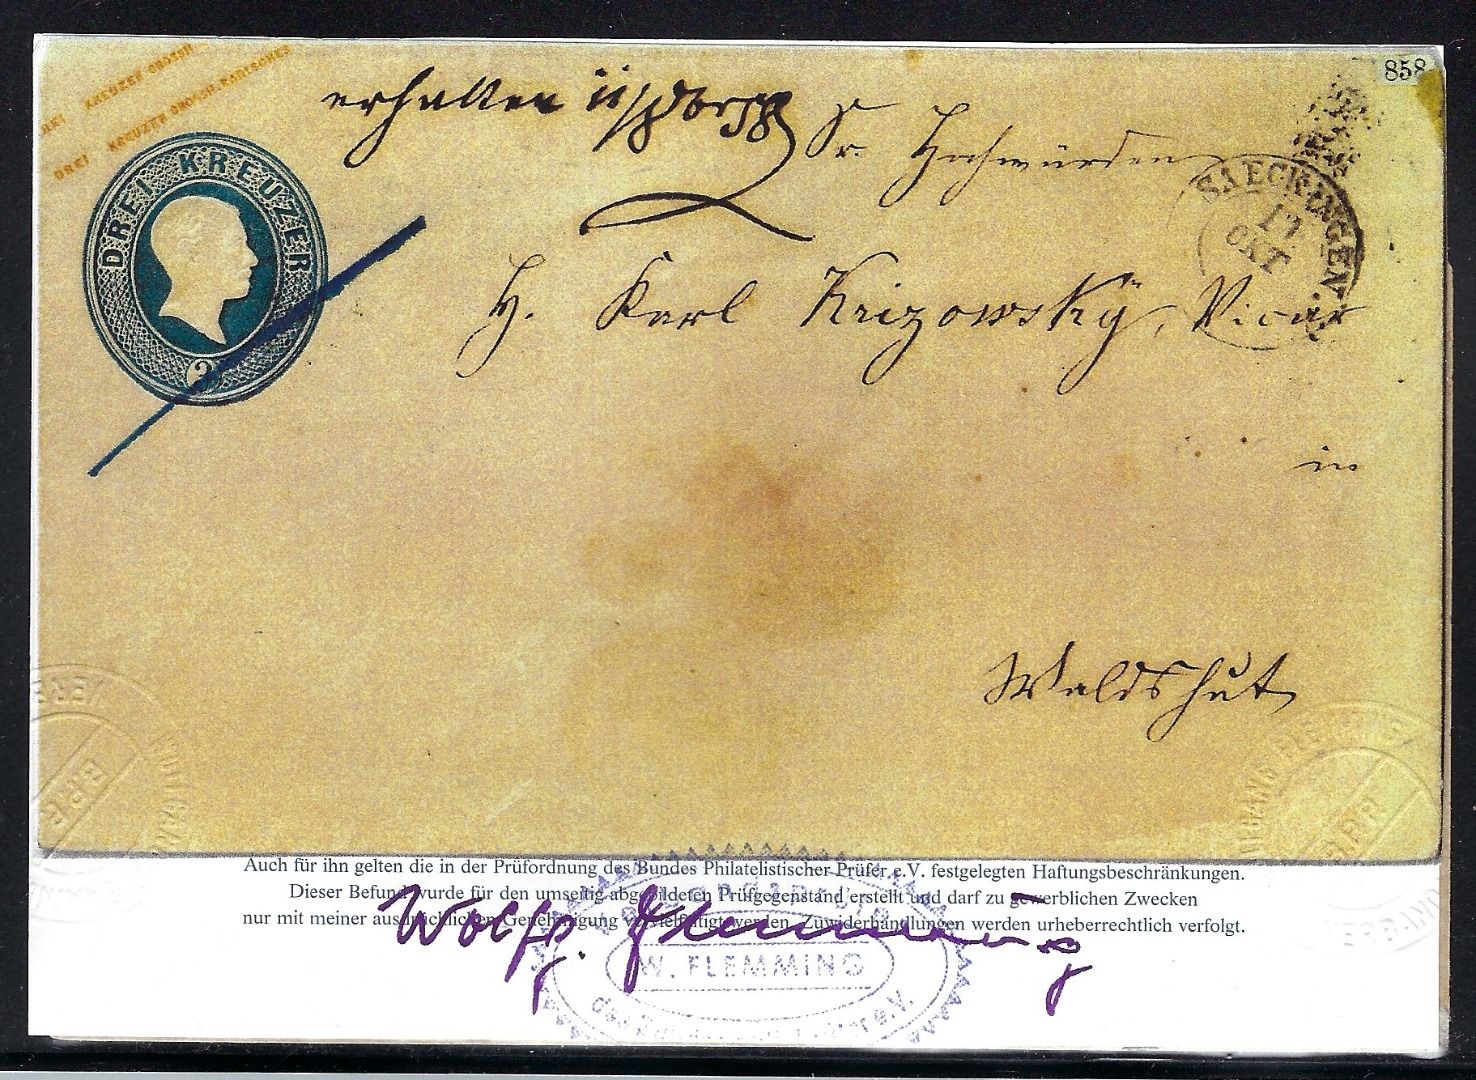 DREI KREUZER GROSSH. BADISCHES
DREI KREUZER
3
858
erhalten
Sr. Hochwürden
SAECKINGEN
17
OKT
H. Karl Krizowsky, Vicar
in
Waldshut
B.P.P.
WOLFGANG FLEMMING
B.P.P.
Auch für ihn gelten die in der Prüfordnung des Bundes Philatelistischer Prüfer e.V. festgelegten Haftungsbeschränkungen.
Dieser Befund wurde für den umseitig abgebildeten Prüfgegenstand erstellt und darf zu gewerblichen Zwecken
nur mit meiner ausdrücklichen Genehmigung vervielfältigt werden. Zuwiderhandlungen werden urheberrechtlich verfolgt.
Wolfg. Flemming
W. FLEMMING